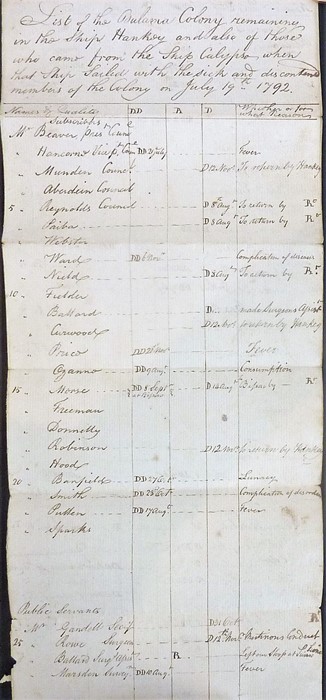 List of the Bulama Colony remaining
in the Ship Hankey and also of those
who came from the Ship Calypso, when
that Ship Sailed with the sick and discontented
members of the Colony on July 19th 1792.
Names & Quality DD R D Whether or for what reason
Subscribers
Mr Beaver, Prest Counl
Hancorne Vice Pt DD 21 July Fever
Munden Councl D 12 Novr To return by Hankey
Aberdein Council
5 Reynolds Council D 8th Augt To return by Rr
Paiba D 3 Augt To return by Rr
Webster
Ward DD 6 Complication of diseases
Nield D 3 Augt To return by Rr
10 Fielder
Ballard D made Surgeons Assist
Curwood D 12 Novr to return by Hankey
Fever
Ozanno DD 9 Augt Consumption
15 Moore DD 8 Sept D 12 Augt by Rr
Freeman
Donnelly
Robinson D 12 Novr to return by Hankey
Hood
20 Banfield DD 27 Octr Lunacy
Smith DD 28 Octr Complication of disorders
Pullen DD 17 Augt Fever
Sparks
Public Servants
Mr Gandell D Octr Rr
25 Rowe Surgeon D 12th Novr Mutinous Conduct
Ballard Surgs Assist R Left on Shop at
Marsden Survey DD 10 Augt Fever